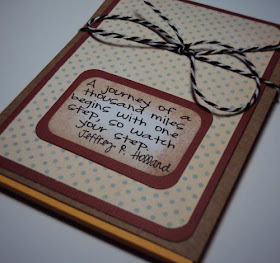 A journey of a
thousand miles
begins with one
step, so watch
your step.
Jeffrey R. Holland